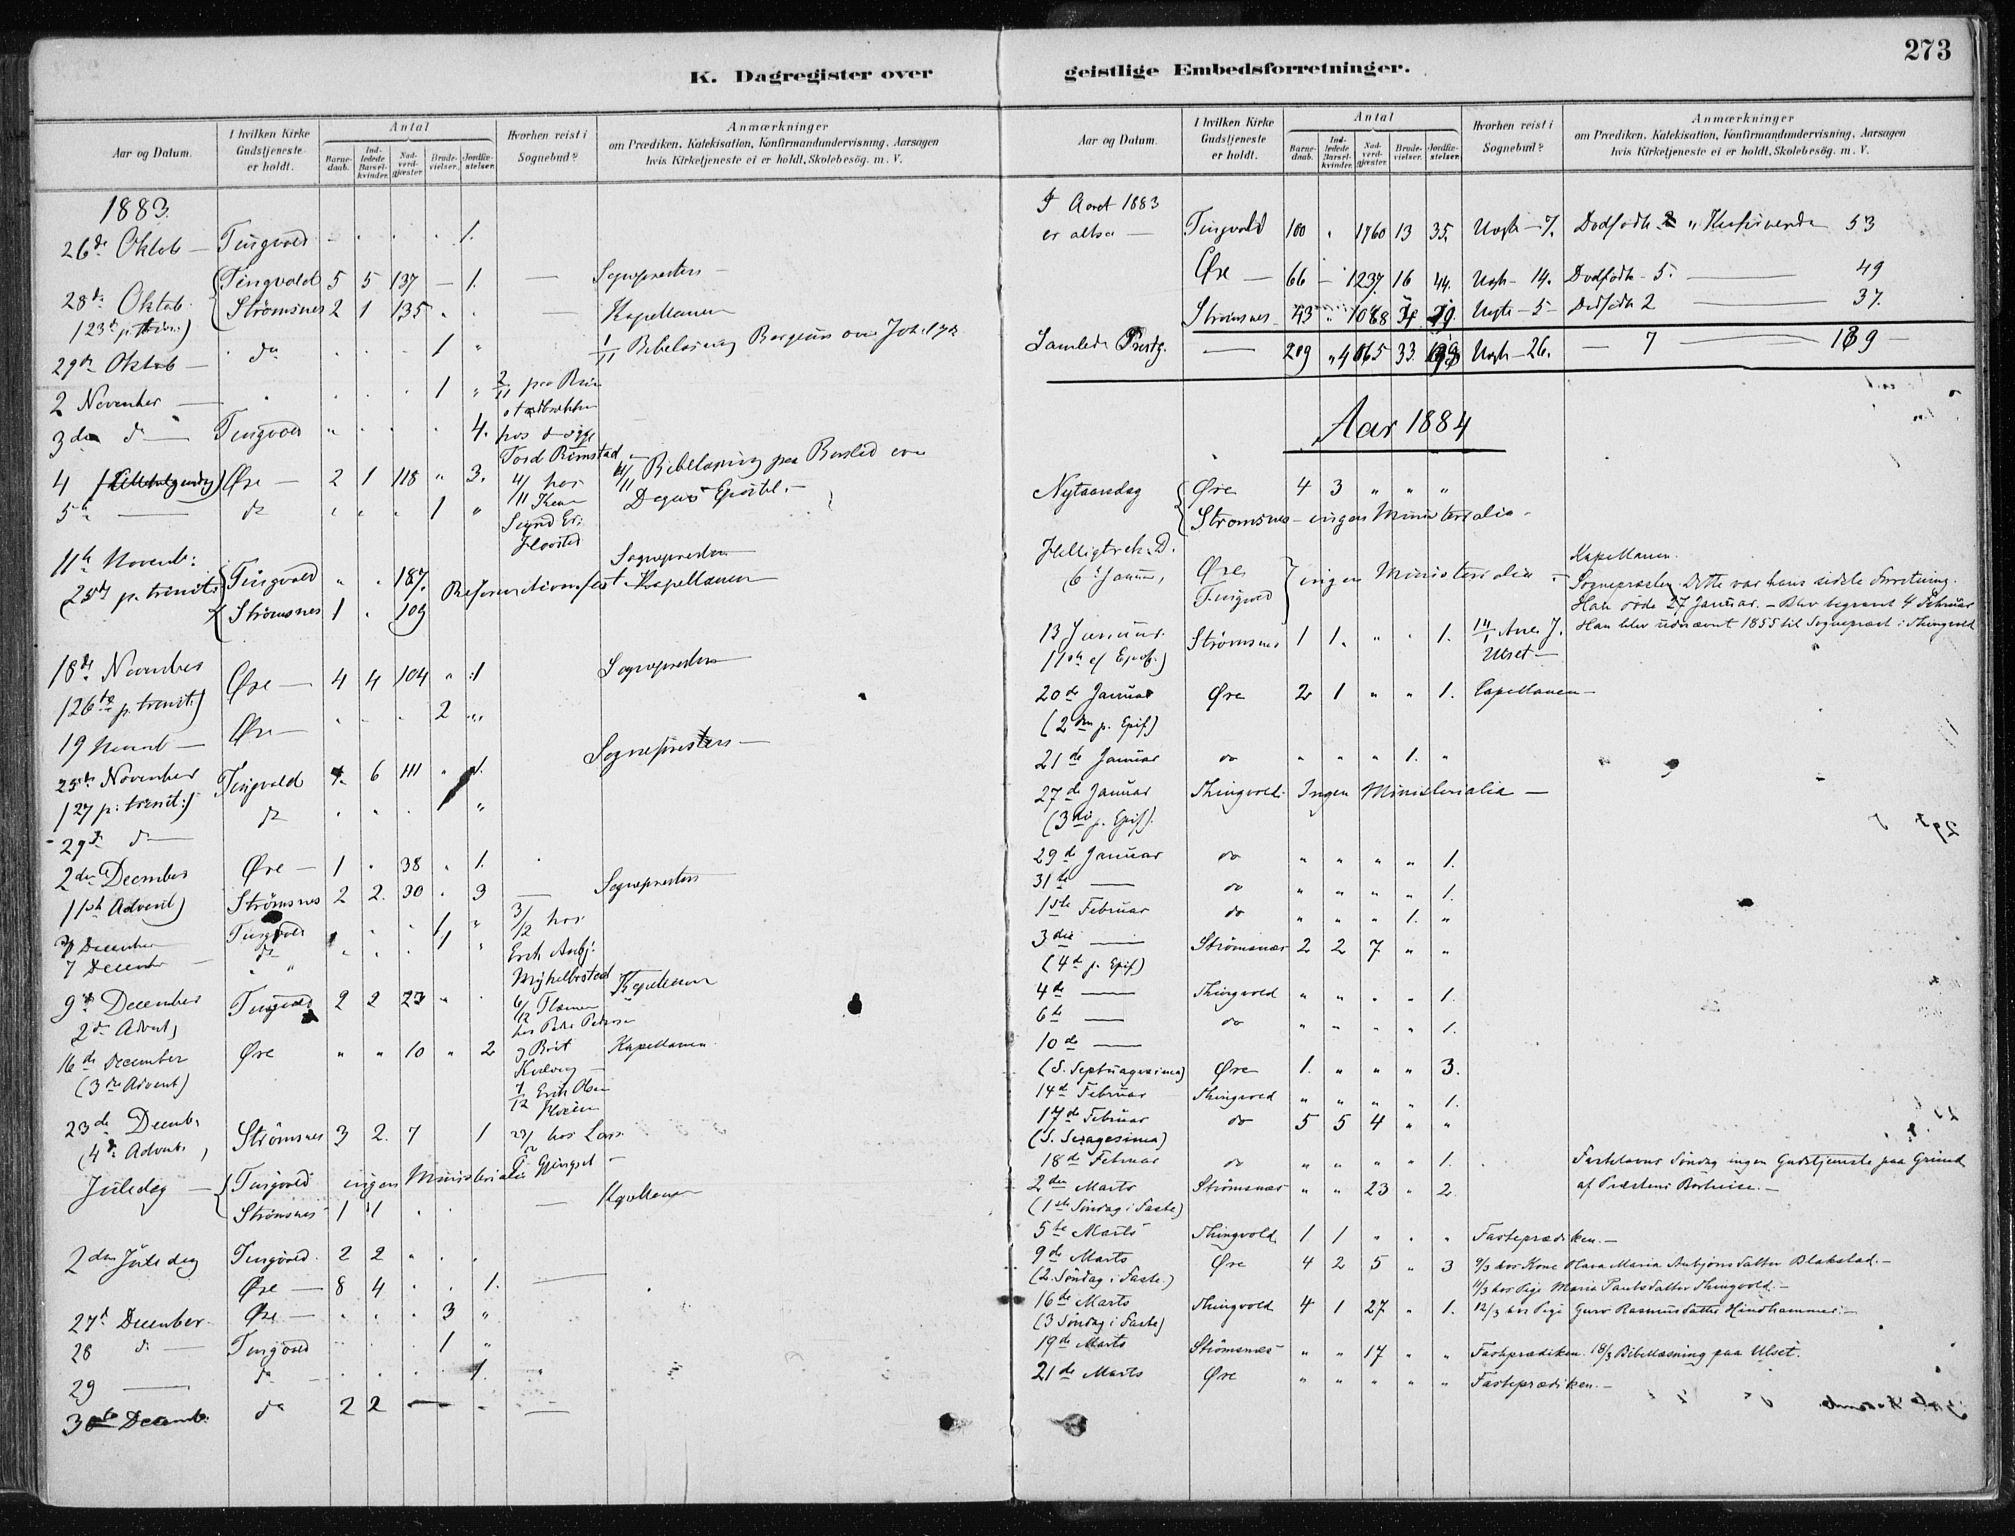 K. Dagregister over
Aar og Datum.
I hvilken Kirke Gudstjeneste er holdt.
Antal
Barnedaab.
Indledede Barselkvinder.
Nadverdgjæster.
Brudevielser.
Jordfæstelser.
Hvorhen reist i Sognebud?
Anmærkninger
om Prædiken, Katekisation, Konfirmandundervisning, Aarsagen
hvis Kirketjeneste ei er holdt, Skolebesög. m. V.
1883.
26de Oktob — Tingvold " " " " 1.
28de Oktob. Tingvold 5 5 137 — 1. — Sognepresten —
(23de p. trin:) Strömsnes 2 1 135 " " — Kapellanen
29de Oktob — do " " " 1 " 1/11 Bibellæsning
2 November — " " " 1 " 2/11 paa
3die do — Tingvold " " " " 4. hos
4 Øre — 2 1 118 " 3. 4/11 hos 4/11 Bibellæsning paa
5te — do " " " 1 "
11te Novemb: Sognepresten
(25de p. trinit: Tingvold " " 187. Reformationsfest — Kapellanen
Strömsnes 1 " 109
18de November Øre — 4 4 104 " 1 Sognepresten
(26de p. trinit:)
19 Novemb — Øre — " " " 2 "
25de November Tingvold 4. 6 111 " 1. Sognepresten —
(27 p: trinit:)
29de do do " " " 1 "
2den December Øre — 1 " 38 " 1.
(1ste Advent) Strömsnes 2 2. 30 " 3 — Sognepresten
December Tingvold " " " 1 " 3/12 hos
7 December — do " " " 1 " Erik
9de December Tingvold 2 2 23 " " 6/12 Kapellanen
2den Advent,
16de December Øre " " 10 " 2 Kapellanen.
(3die Advent) 7/12 Erik Olsen
23de Decemb. Strömsnes 3 2. 7 1 23/12 hos Lars
(4de Advent,
Juledag — Tingvold ingen Ministerialia
Strömsnes 1 1 " " — Kapellanen
2den Juledag Tingvold. 2 2 " " "
Øre — 8 4 " " 1. —
27de December. Øre — " " " 3 "
28 do — Tingvold " " " 1 "
29 — do — " " " " 1.
30te Decemb. do 2 2 — " —
273
geistlige Embedsforretninger.
Aar og Datum.
I hvilken Kirke Gudstjeneste er holdt.
Antal
Barnedaab.
Indledede Barselkvinder.
Nadverdgjæster.
Brudevielser.
Jordfæstelser.
Hvorhen reist i Sognebud?
Anmærkninger
om Prædiken, Katekisation, Konfirmandundervisning, Aarsagen
hvis Kirketjeneste ei er holdt, Skolebesög. m. V.
I Aaret 1883
er altsaa — Tingvold 100 " 1760 13 35. Uægte — 7. Dodfødte 2 " Konfirmerede 53
Øre — 66 — 1237. 16 44. Uægte — 14. Dodfødte — 5. — 49
Strömsnes — 43 " 1068 Uægte — 5 — Dodfødte 2 — 37.
Samlede Prestg. — 209 " 4065 33. Uægte — 26. — 7 — 139 —
Aar 1884
Nytaarsdag Øre 4 3 " " "
Strömsnes — ingen Ministerialia —
Helligtrek. D. Kapellanen.
(6te Januar, Øre ingen Ministerialia — Sognepræsten. Dette var hans sidste Forretning.
Tingvold Han døde 27 Januar. — Blev begravet 4 Februar
13 Januar. Strömsnes 1 1. " " 1. 14/1 Arne J. Han blev udnævnt 1855 til Sognepræst i Thingvold
(1ste e/ Epif.) Ulset —
20de Januar Øre 2 1 " " 1. Capellanen —
(2den p. Epif)
21de Januar do " " " 1. "
27de Januar Thingvold. Ingen Ministerialia —
(3die p. Epif).
29de Januar do " " " " 1.
31te — do " " " " 1.
1ste Februar do " " " 1. "
3die — Strömsnæs 2 2 7 " "
(4de p. Epif)
4de — Thingvold " " " " 1.
6te — do " " " " 1.
10de —
(S. Septuagesima) Øre 1. " " " 3.
14de Februar Thingvold " " " " 1.
17de Februar do 5 5 4 " "
(S. Sexagesima)
18de Februar do " " " " 1. Fastelavns Søndag ingen Gudstjeneste paa Grund
2den Marts Strömsnæs " " 23 " 2 af Præstens Bortreise. —
(1ste Søndag i Faste)
5te Marts Thingvold 1 1 " " " Fasteprædiken. —
9de Marts Øre 4 2 5 " 3 9/3 hos Kone Maria Anbjønsdatter Blakstad. —
(2. Søndag i Faste.) 11/3 hos Pige Maria Paulsdatter Thingvold. —
16de Marts Thingvold 4 1 27 " 1. 12/3 hos Pige Guro Rasmusdatter Hindhammer. —
(3 Søndag i Faste)
19de Marts Strömsnes " " 17 " " Fasteprædiken. 18/3 Bibellæsning paa Ulset.
21de Marts Øre " " " " " Fasteprædiken. —